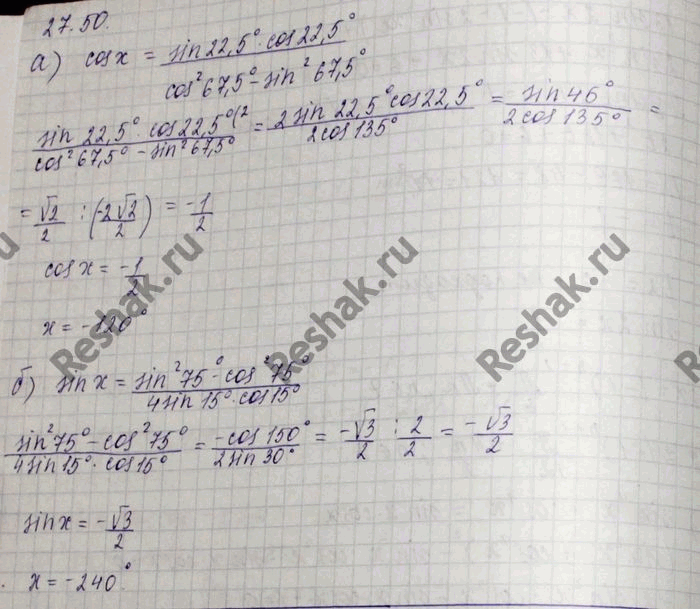 27.50.
а) cosx = sin22,5°·cos22,5° / cos²67,5° - sin²67,5°
sin22,5°·cos22,5°(2 / cos²67,5° - sin²67,5° = 2sin22,5°cos22,5° / 2cos135° = sin46° / 2cos135° =
= √2/2 : (-2√2/2) = -1/2
cosx = -1/2
x = -120°
б) sinx = sin²75° - cos²75° / 4sin15°·cos15°
sin²75° - cos²75° / 4sin15°·cos15° = -cos150° / 2sin30° = -√3/2 : 2/2 = -√3/2
sinx = -√3/2
x = -240°
Reshak.ru
Reshak.ru
Reshak.ru
Reshak.ru